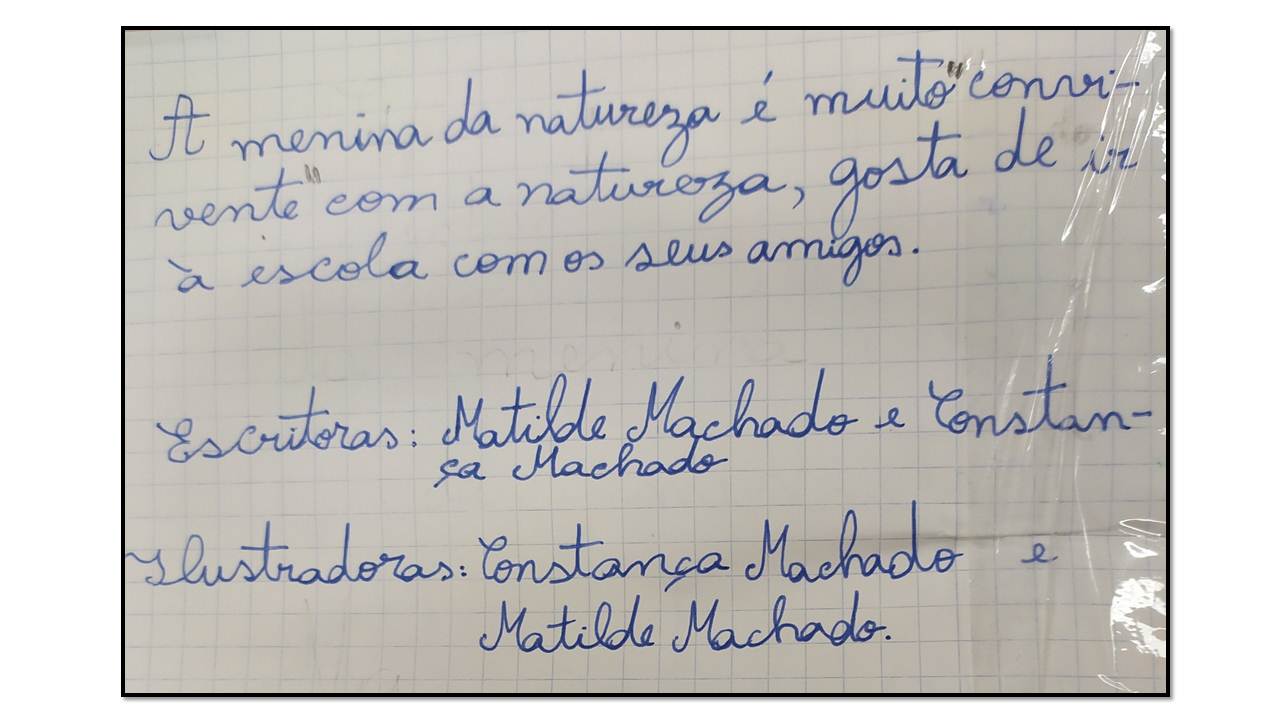 A menina da natureza é muito "convi-
vente" com a natureza, gosta de ir
à escola com os seus amigos.
Escritoras: Matilde Machado e Constan-
ça Machado
Ilustradoras: Constança Machado e
Matilde Machado.